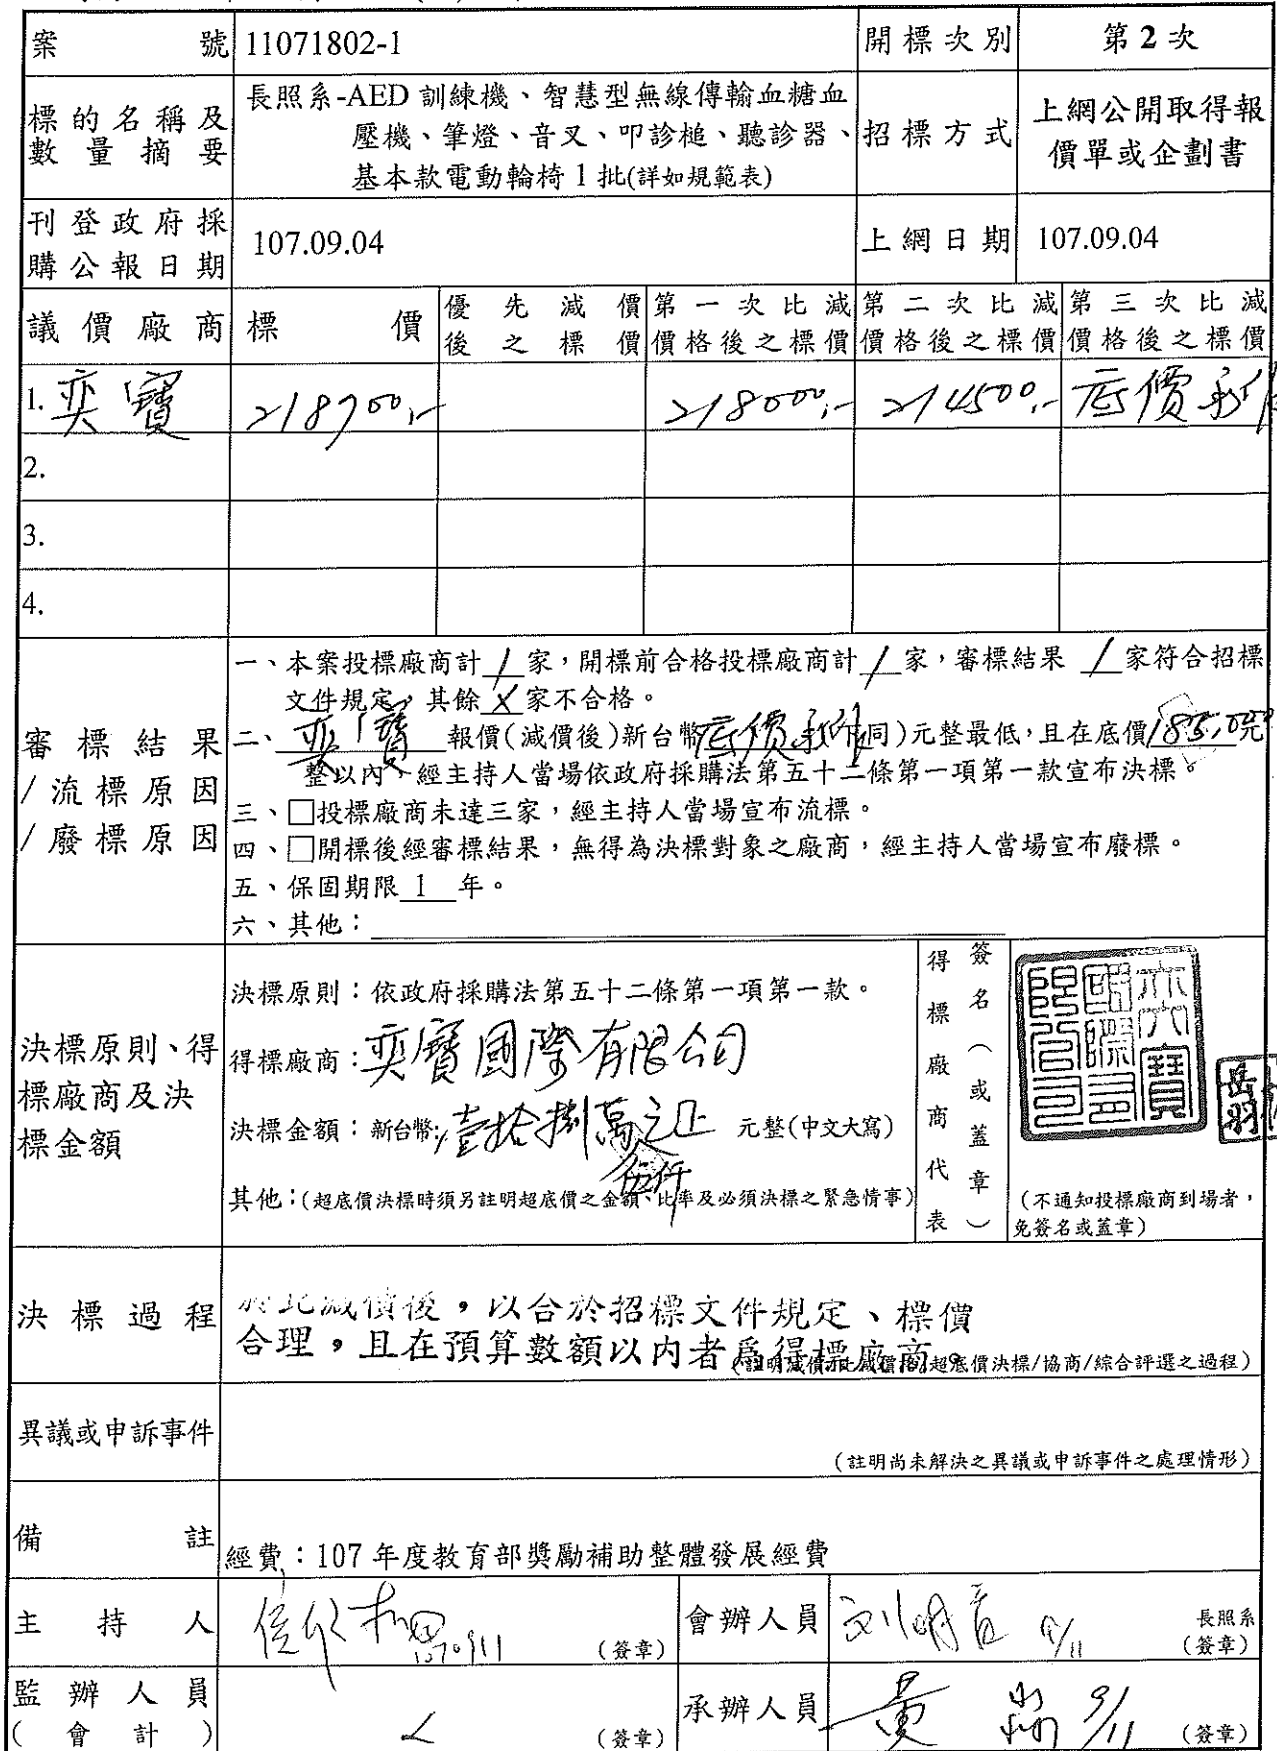 案號 11071802-1 開標次別 第2次
標的名稱及數量摘要 長照系-AED 訓練機、智慧型無線傳輸血糖血
壓機、筆燈、音叉、叩診槌、聽診器、
基本款電動輪椅 1 批(詳如規範表)
招標方式 上網公開取得報
價單或企劃書
刊登政府採
購公報日期 107.09.04 上網日期 107.09.04
議價廠商 標價 優先減價後之標價 第一次比減價格後之標價 第二次比減價格後之標價 第三次比減價格後之標價
1. 奕寶 218700,- 218000,- 214500,- 底價承作
2.
3.
4.
審標結果
/流標原因
/廢標原因
一、本案投標廠商計 1 家，開標前合格投標廠商計 1 家，審標結果 1 家符合招標
文件規定，其餘 X 家不合格。
二、奕寶 報價(減價後)新台幣底價承作(同)元整最低，且在底價185,000元
整以內、經主持人當場依政府採購法第五十二條第一項第一款宣布決標。
三、□投標廠商未達三家，經主持人當場宣布流標。
四、□開標後經審標結果，無得為決標對象之廠商，經主持人當場宣布廢標。
五、保固期限 1 年。
六、其他：
決標原則、得
標廠商及決
標金額
決標原則：依政府採購法第五十二條第一項第一款。
得標廠商：奕寶國際有限公司
決標金額：新台幣：壹拾捌萬 伍仟 元整(中文大寫)
其他：(超底價決標時須另註明超底價之金額、比率及必須決標之緊急情事)
得標廠商代表
簽名（或蓋章）
奕寶國際有限公司
(不通知投標廠商到場者，
免簽名或蓋章)
決標過程
於比減價後，以合於招標文件規定、標價
合理，且在預算數額以內者為得標廠商。
超底價決標/協商/綜合評選之過程)
異議或申訴事件
(註明尚未解決之異議或申訴事件之處理情形)
備註
經費：107 年度教育部獎勵補助整體發展經費
主持人 (簽章) 會辦人員 9/11 長照系
(簽章)
監辦人員
(會計) (簽章) 承辦人員 黃 9/11 (簽章)